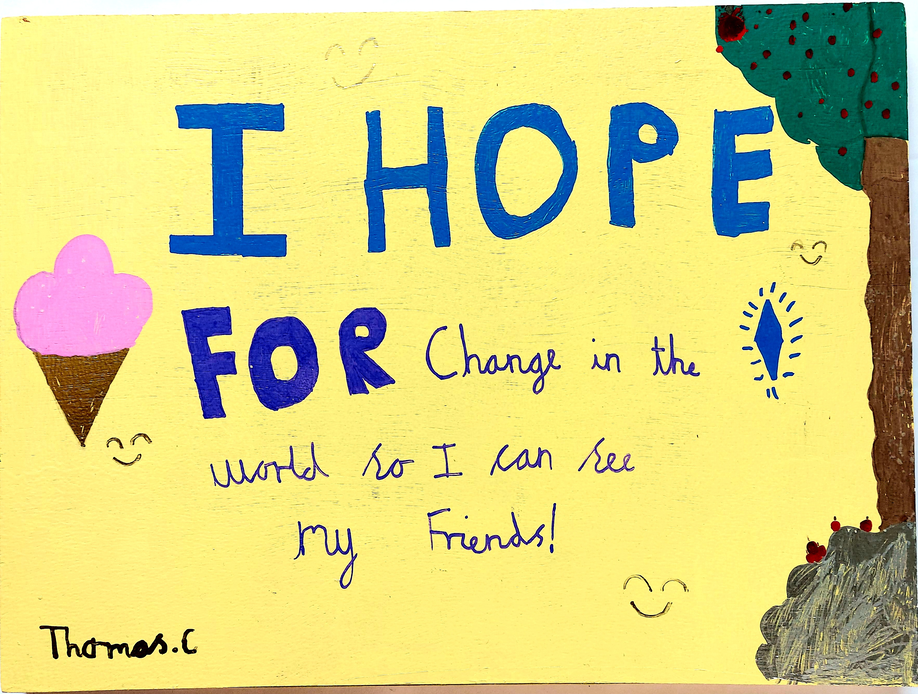 I HOPE
FOR Change in the
world so I can see
my Friends!
Thomas.C